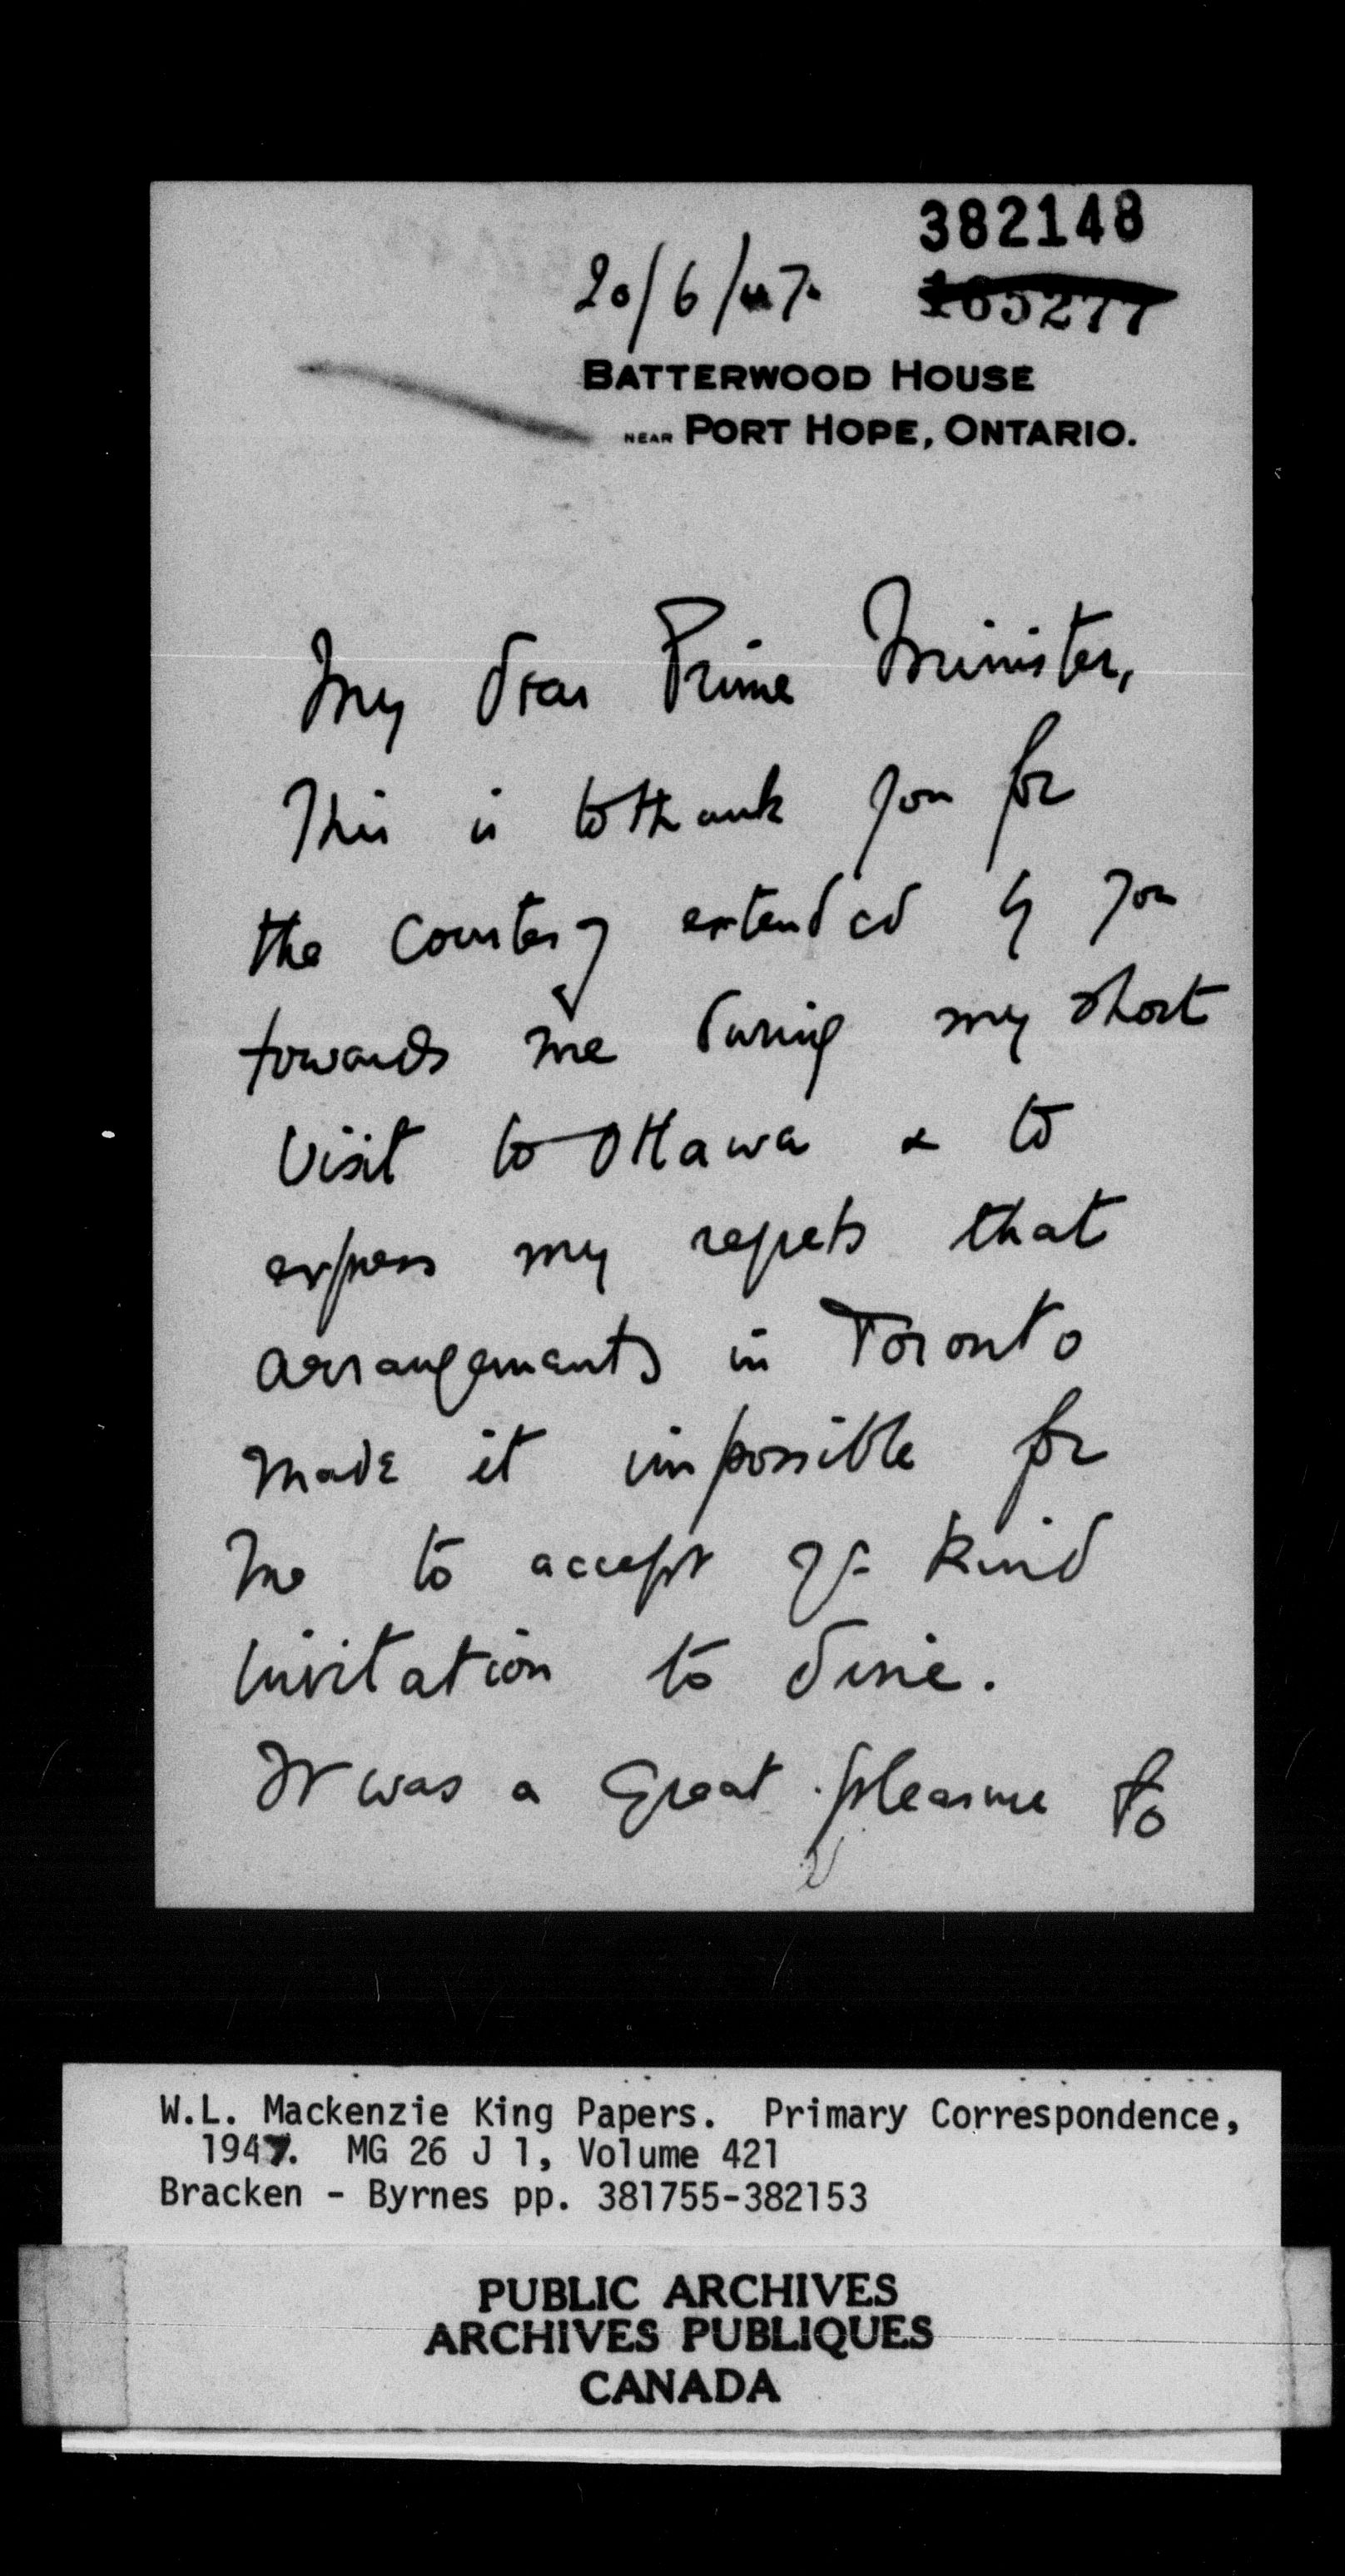 382148
20/6/47.
165277
BATTERWOOD HOUSE
NEAR PORT HOPE, ONTARIO.
My dear Prime Minister,
This is to thank you for
the courtesy extended by you
towards me during my short
visit to Ottawa & to
express my regrets that
arrangements in Toronto
made it impossible for
me to accept yr kind
invitation to dine.
It was a great pleasure to
W.L. Mackenzie King Papers. Primary Correspondence,
1947. MG 26 J 1, Volume 421
Bracken - Byrnes pp. 381755-382153
PUBLIC ARCHIVES
ARCHIVES PUBLIQUES
CANADA